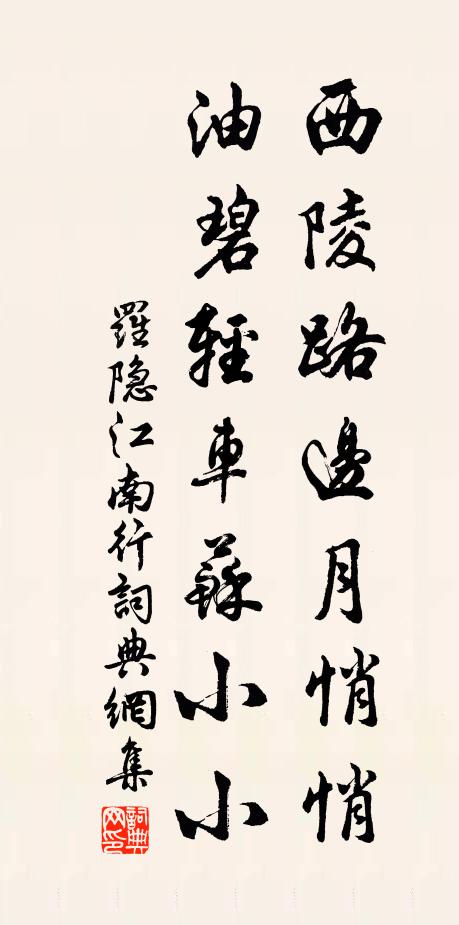 西陵路邊月悄悄
油碧輕車蘇小小
羅隐江南行詞典網集
詞典網印